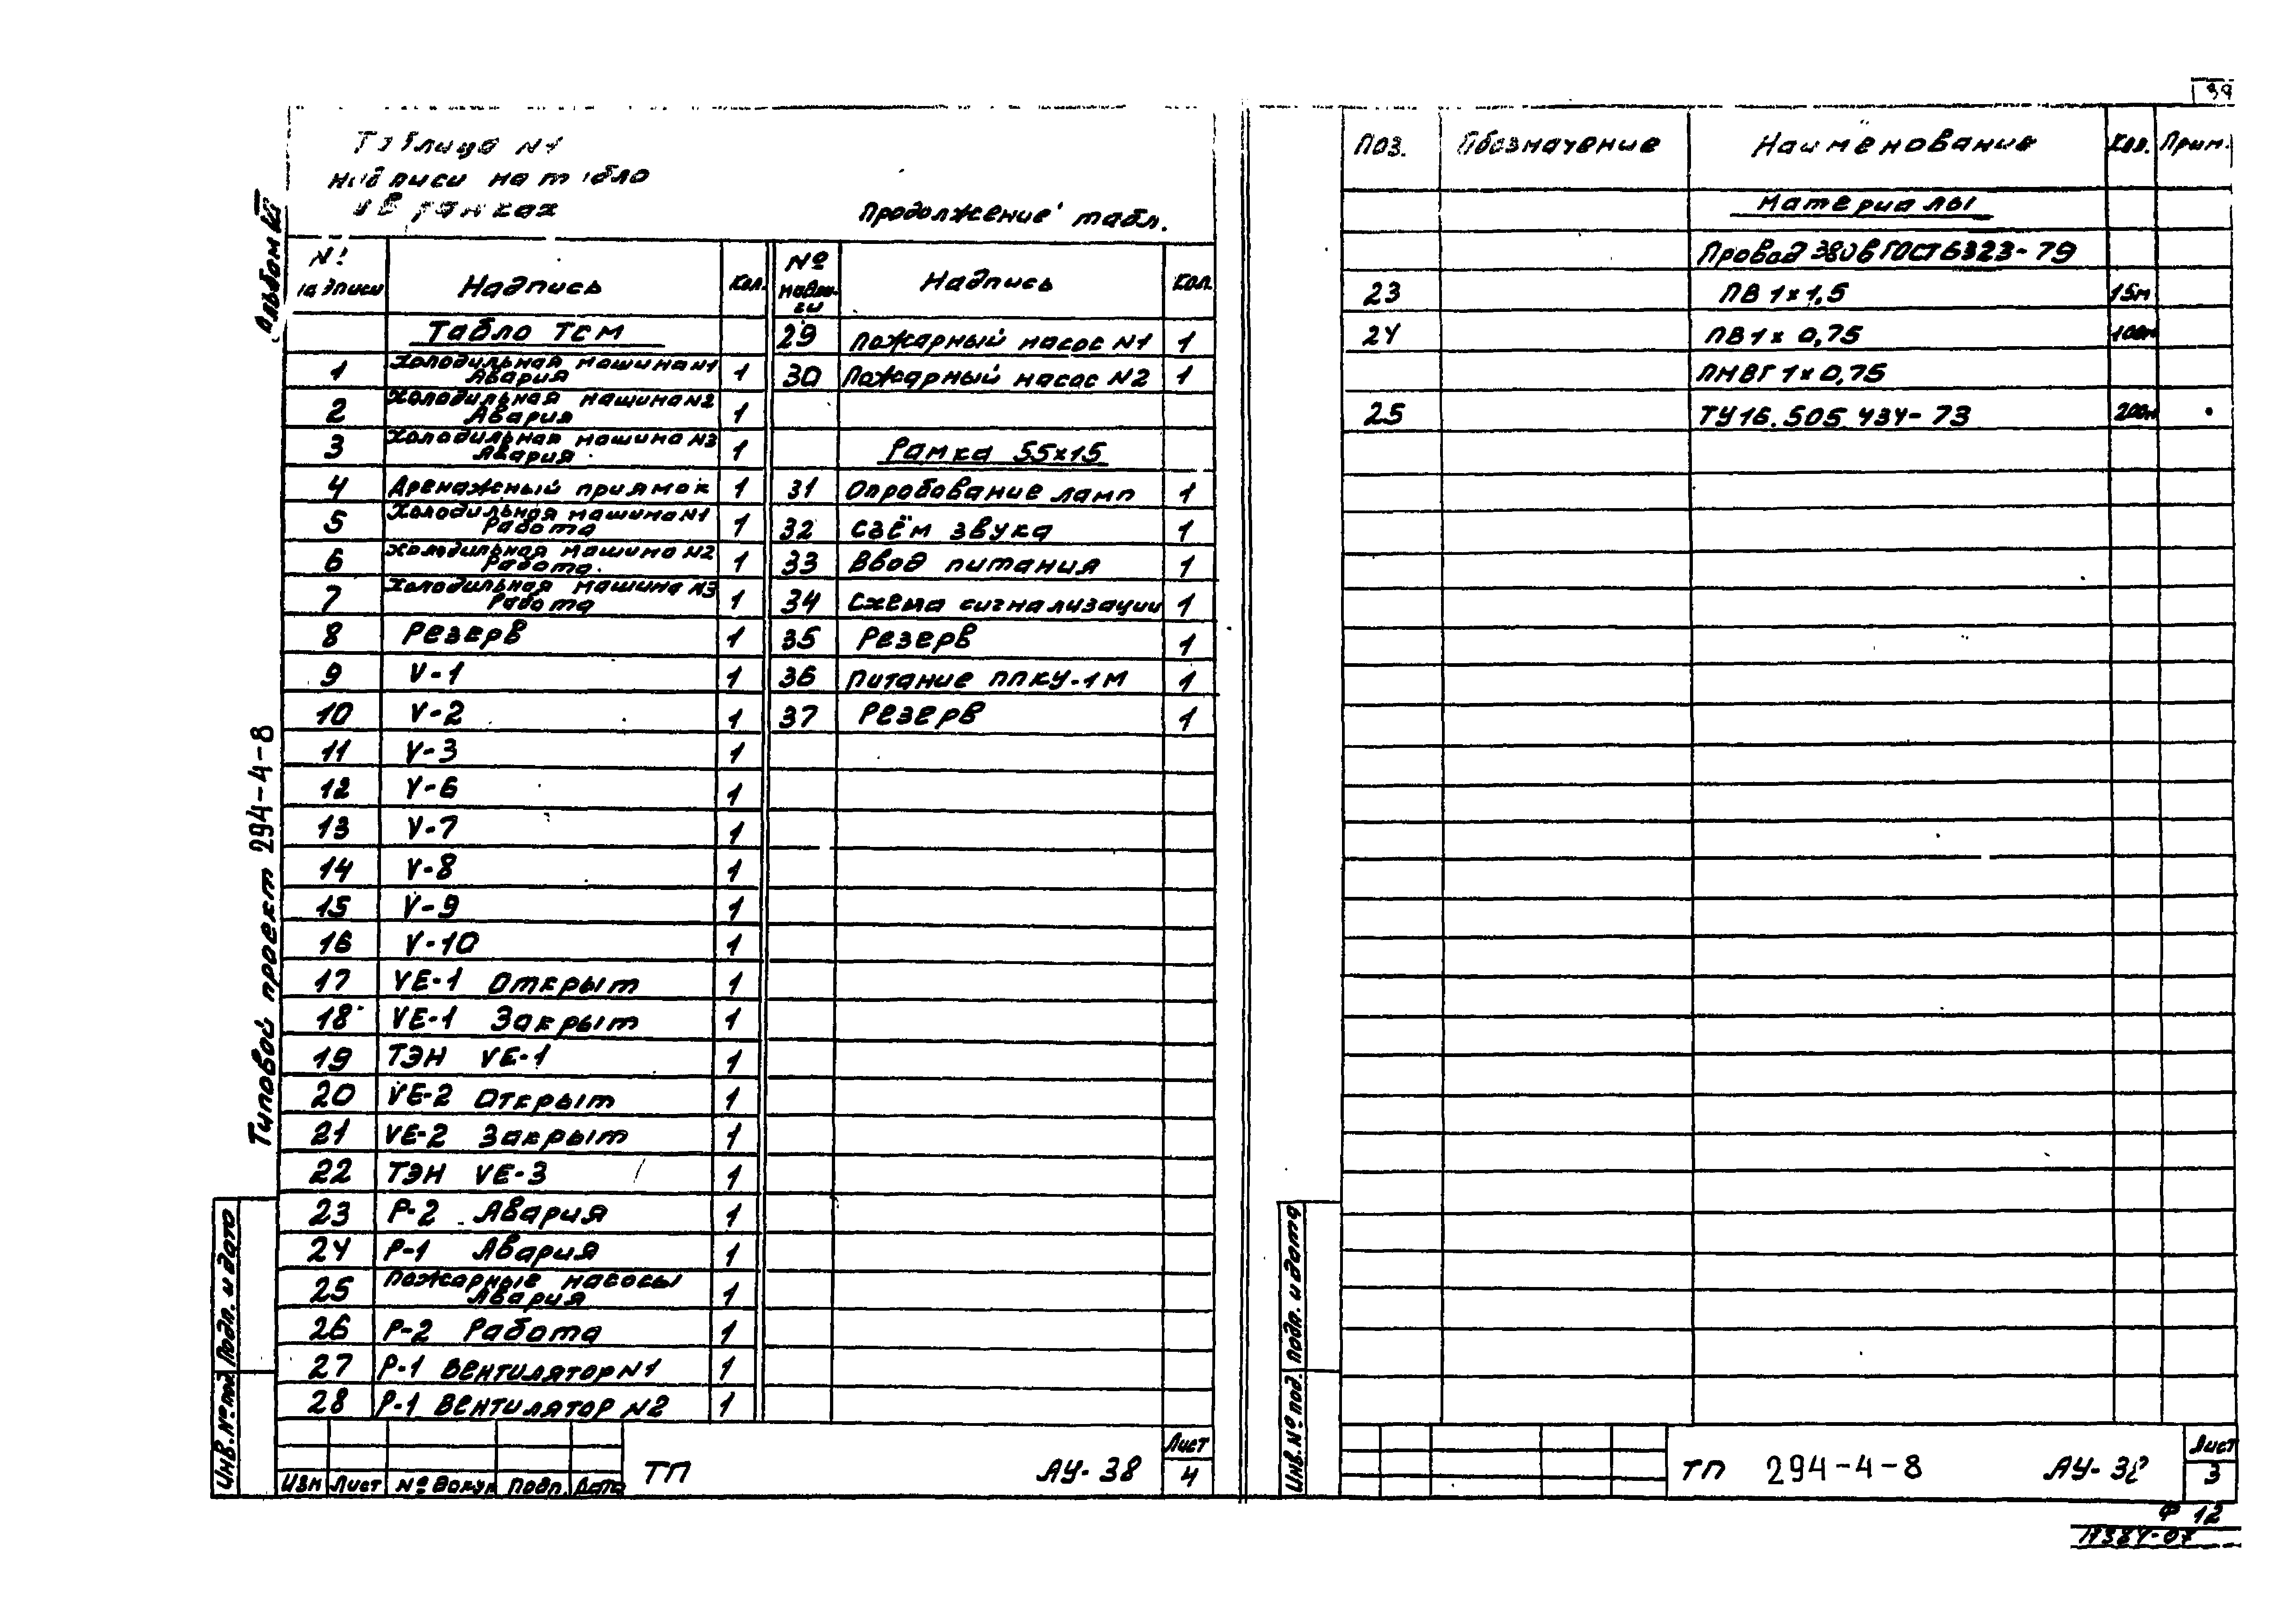 39
Таблица №1
Надписи на табло
и в рамках
Продолжение табл.
№ надписи Надпись Кол.
Табло ТСМ
1 Холодильная машина №1 Авария 1
2 Холодильная машина №2 Авария 1
3 Холодильная машина №3 Авария 1
4 Дренажный приямок 1
5 Холодильная машина №1 Работа 1
6 Холодильная машина №2 Работа. 1
7 Холодильная машина №3 Работа 1
8 Резерв 1
9 V-1 1
10 V-2 1
11 V-3 1
12 V-6 1
13 V-7 1
14 V-8 1
15 V-9 1
16 V-10 1
17 VE-1 Открыт 1
18 VE-1 Закрыт 1
19 ТЭН VE-1 1
20 VE-2 Открыт 1
21 VE-2 Закрыт 1
22 ТЭН VE-3 1
23 Р-2 Авария 1
24 Р-1 Авария 1
25 Пожарные насосы Авария 1
26 Р-2 Работа 1
27 Р-1 Вентилятор №1 1
28 Р-1 Вентилятор №2 1
№ надписи Надпись Кол.
29 Пожарный насос №1 1
30 Пожарный насос №2 1
Рамка 55х15
31 Опробование ламп 1
32 Съём звука 1
33 Ввод питания 1
34 Схема сигнализации 1
35 Резерв 1
36 Питание ППКУ-1М 1
37 Резерв 1
Изм Лист № докум Подп. Дата
ТП АУ-38
Лист
4
Альбом
Типовой проект 294-4-8
Подп. и дата
Инв. № под.
Поз. Обозначение Наименование Кол. Прим.
Материалы
Провод 380В ГОСТ 6323-79
23 ПВ 1х1,5 15м
24 ПВ 1х 0,75 100м
ПМВГ 1х0,75
25 ТУ16.505 434-73 200м
Подп. и дата
Инв. № под.
ТП 294-4-8 АУ-38
Лист
3
Ф 12
17384-07